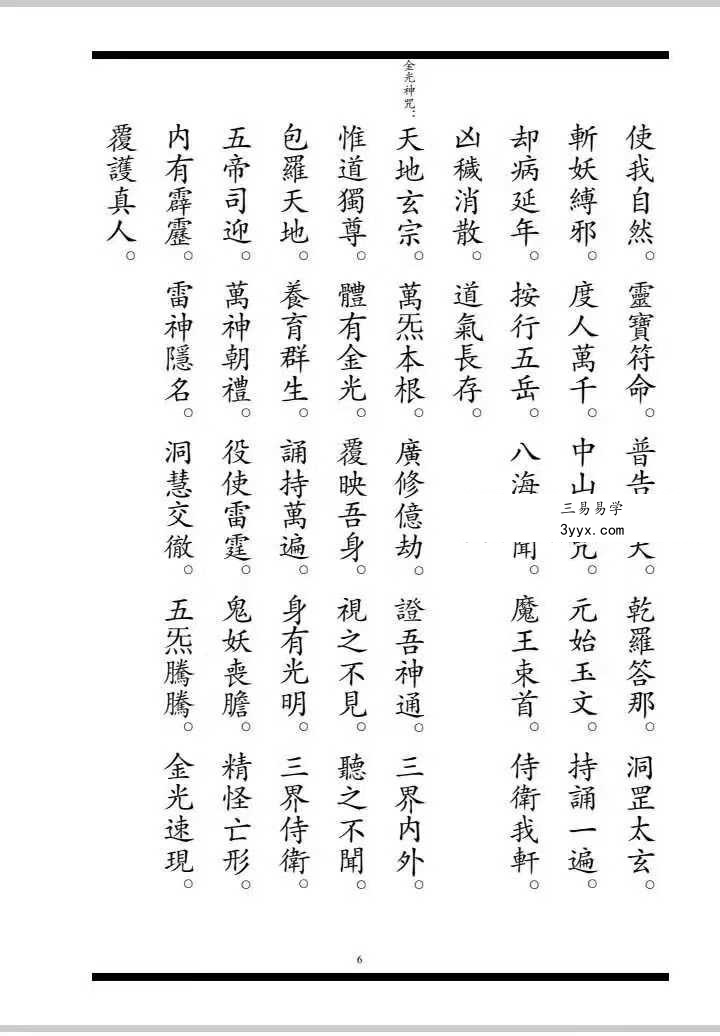 使我自然。靈寶符命。普告天。乾羅答那。洞罡太玄。
斬妖縛邪。度人萬千。中山咒。元始玉文。持誦一遍。
却病延年。按行五岳。八海聞。魔王束首。侍衛我軒。
凶穢消散。道氣長存。
金光神咒：
天地玄宗。萬炁本根。廣修億劫。證吾神通。三界内外。
惟道獨尊。體有金光。覆映吾身。視之不見。聽之不聞。
包羅天地。養育群生。誦持萬遍。身有光明。三界侍衛。
五帝司迎。萬神朝禮。役使雷霆。鬼妖喪膽。精怪亡形。
内有霹靂。雷神隱名。洞慧交徹。五炁騰騰。金光速現。
覆護真人。
三易易学
3yyx.com
6